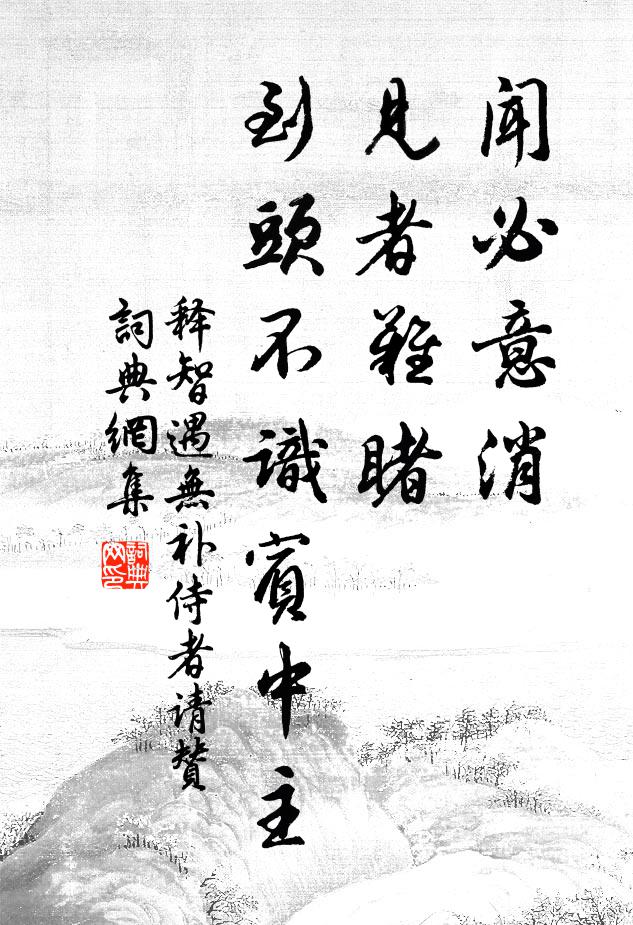 闻必意消
見者難睹
到頭不識賓中主
释智遇無补侍者请赞
詞典網集
詞典